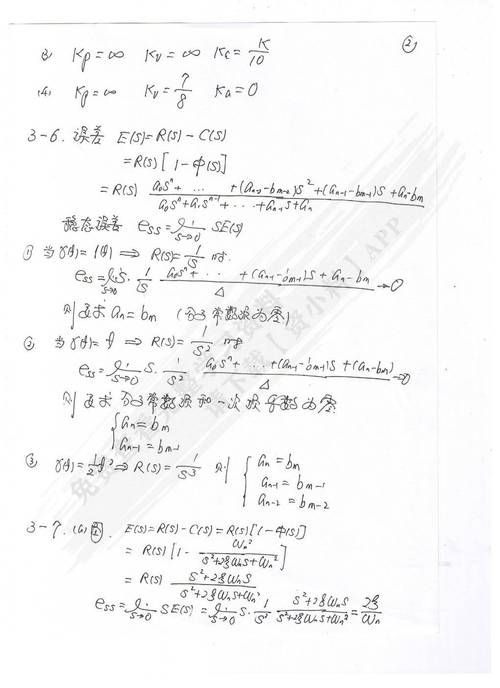 ②
(3) Kp=∞ Kv=∞ Kc=K/10
(4) Kp=∞ Kv=7/8 Ka=0
3-6. 误差 E(S)=R(S)-C(S)
=R(S)[1-Φ(S)]
=R(S) (a₀Sⁿ+ … +(aₙ₋₂-bₘ₋₂)S²+(aₙ₋₁-bₘ₋₁)S+aₙ-bₘ)/(a₀Sⁿ+a₁Sⁿ⁻¹+…+aₙ₋₁S+aₙ)
稳态误差 ess=li. S→0 SE(S)
① 当r(t)=1(t) ⟹ R(S)=1/S 时.
ess=li. S→0 S· 1/S (a₀Sⁿ+ … +(aₙ₋₁-bₘ₋₁)S+aₙ-bₘ)/Δ →0
则要求 aₙ=bₘ (分子常数项为零)
② 当r(t)=t ⟹ R(S)=1/S² 时
ess=li. S→0 S· 1/S² (a₀Sⁿ+ … +(aₙ₋₁-bₘ₋₁)S+(aₙ-bₘ))/Δ →0
则要求分子常数项和一次项系数为零
{aₙ=bₘ
aₙ₋₁=bₘ₋₁
③ r(t)=1/2 t² ⟹ R(S)=1/S³ 则 {aₙ=bₘ
aₙ₋₁=bₘ₋₁
aₙ₋₂=bₘ₋₂
3-7. (a)图. E(S)=R(S)-C(S)=R(S)[1-Φ(S)]
=R(S)[1- ωn²/(S²+2ξωnS+ωn²)]
=R(S) (S²+2ξωnS)/(S²+2ξωnS+ωn²)
ess=li. S→0 SE(S)=li. S→0 S· 1/S² (S²+2ξωnS)/(S²+2ξωnS+ωn²)=2ξ/ωn